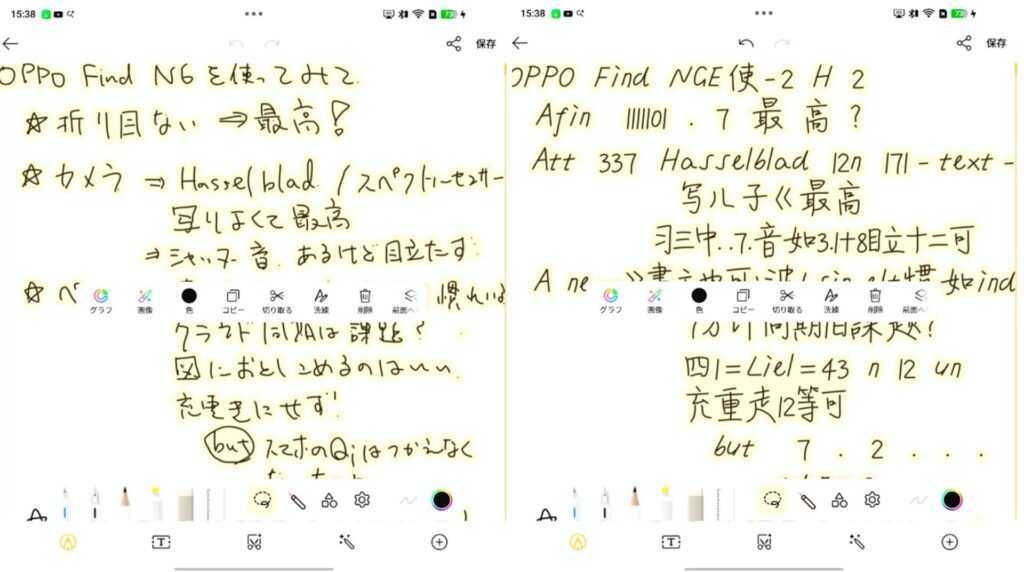 15:38
73
保存
OPPO Find N6を使ってみて.
☆折り目ない ⇒最高!
☆カメラ ⇒ Hasselblad. /スペクトルセンサー
写りよくて最高
⇒シャッター音. あるけど目立たず.
☆ペ
慣れいる
グラフ
画像
色
コピー
切り取る
洗練
削除
前面へ
クラウド同期は課題?
図におとしこめるのはいい.
充電気にせず!
but スマホのQiはつかえなく
15:38
73
保存
OPPO Find NGE使-2 H 2
Afin 1111101 . 7 最高?
Att 337 Hasselblad 12n 171-text-
写ル子ㄍ最高
习三中..7.音如3.1+8目立十二可
A ne
慣如ind
グラフ
画像
色
コピー
切り取る
洗練
削除
前面へ
同期旧課題?
四1=Liel=43 n 12 un
充重走12等可
but 7 . 2 . . .